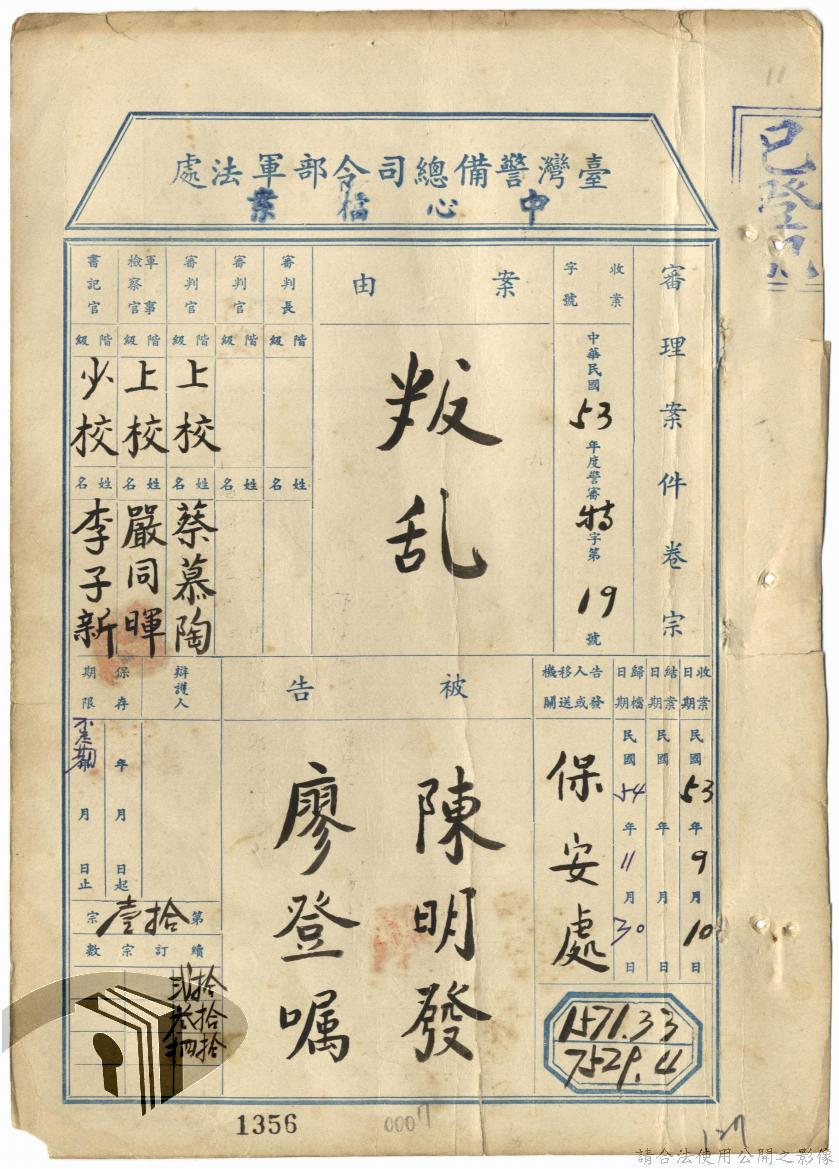 11
已登記
臺灣警備總司令部軍法處
中心檔案
審理案件卷宗
收案字號
中華民國53年度警審特字第19號
案由
叛乱
審判長
階級
姓名
審判官
階級
姓名
審判官
階級
上校
姓名
蔡慕陶
軍事檢察官
階級
上校
姓名
嚴同暉
書記官
階級
少校
姓名
李子新
收案日期
民國53年9月10日
結案日期
民國年月日
歸檔日期
民國54年11月30日
告發人或移送機關
保安處
1571.33
7529.4
被告
陳明發
廖登嘱
辯護人
保存期限
年月日起
年月日止
不定期
第拾壹宗
續訂宗數
拾貳
拾叁
拾肆
1356
0007
127
請合法使用公開之影像